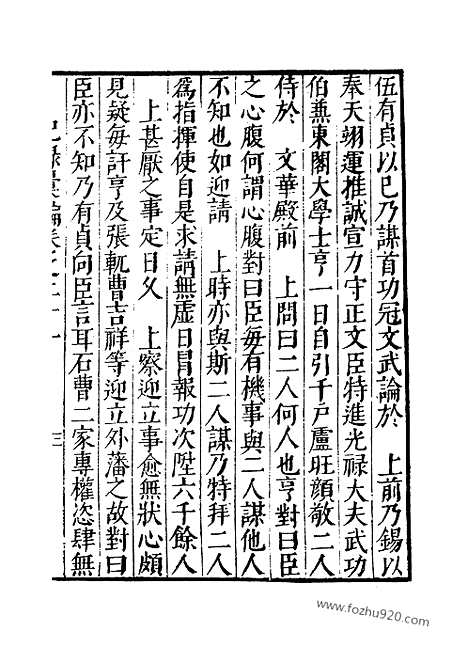 伍有貞以已乃謀首功冠文武論於　上前乃錫以
奉天翊運推誠宣力守正文臣特進光祿大夫武功
伯兼東閣大學士亨一日自引千戶盧旺顔敬二人
侍於　文華殿前　上問曰二人何人也亨對曰臣
之心腹何謂心腹對曰臣每有機事與二人謀他人
不知也如迎請　上時亦與斯二人謀乃特拜二人
爲指揮使自是求請無虛日冒報功次陞六千餘人
　上甚厭之事定日久　上察迎立事愈無狀心頗
見疑每訐亨及張軏曹吉祥等迎立外藩之故對曰
臣亦不知乃有貞向臣言耳石曹二家專權恣肆無
紀錄彙編卷之二十一　三
www.fozhu920.com